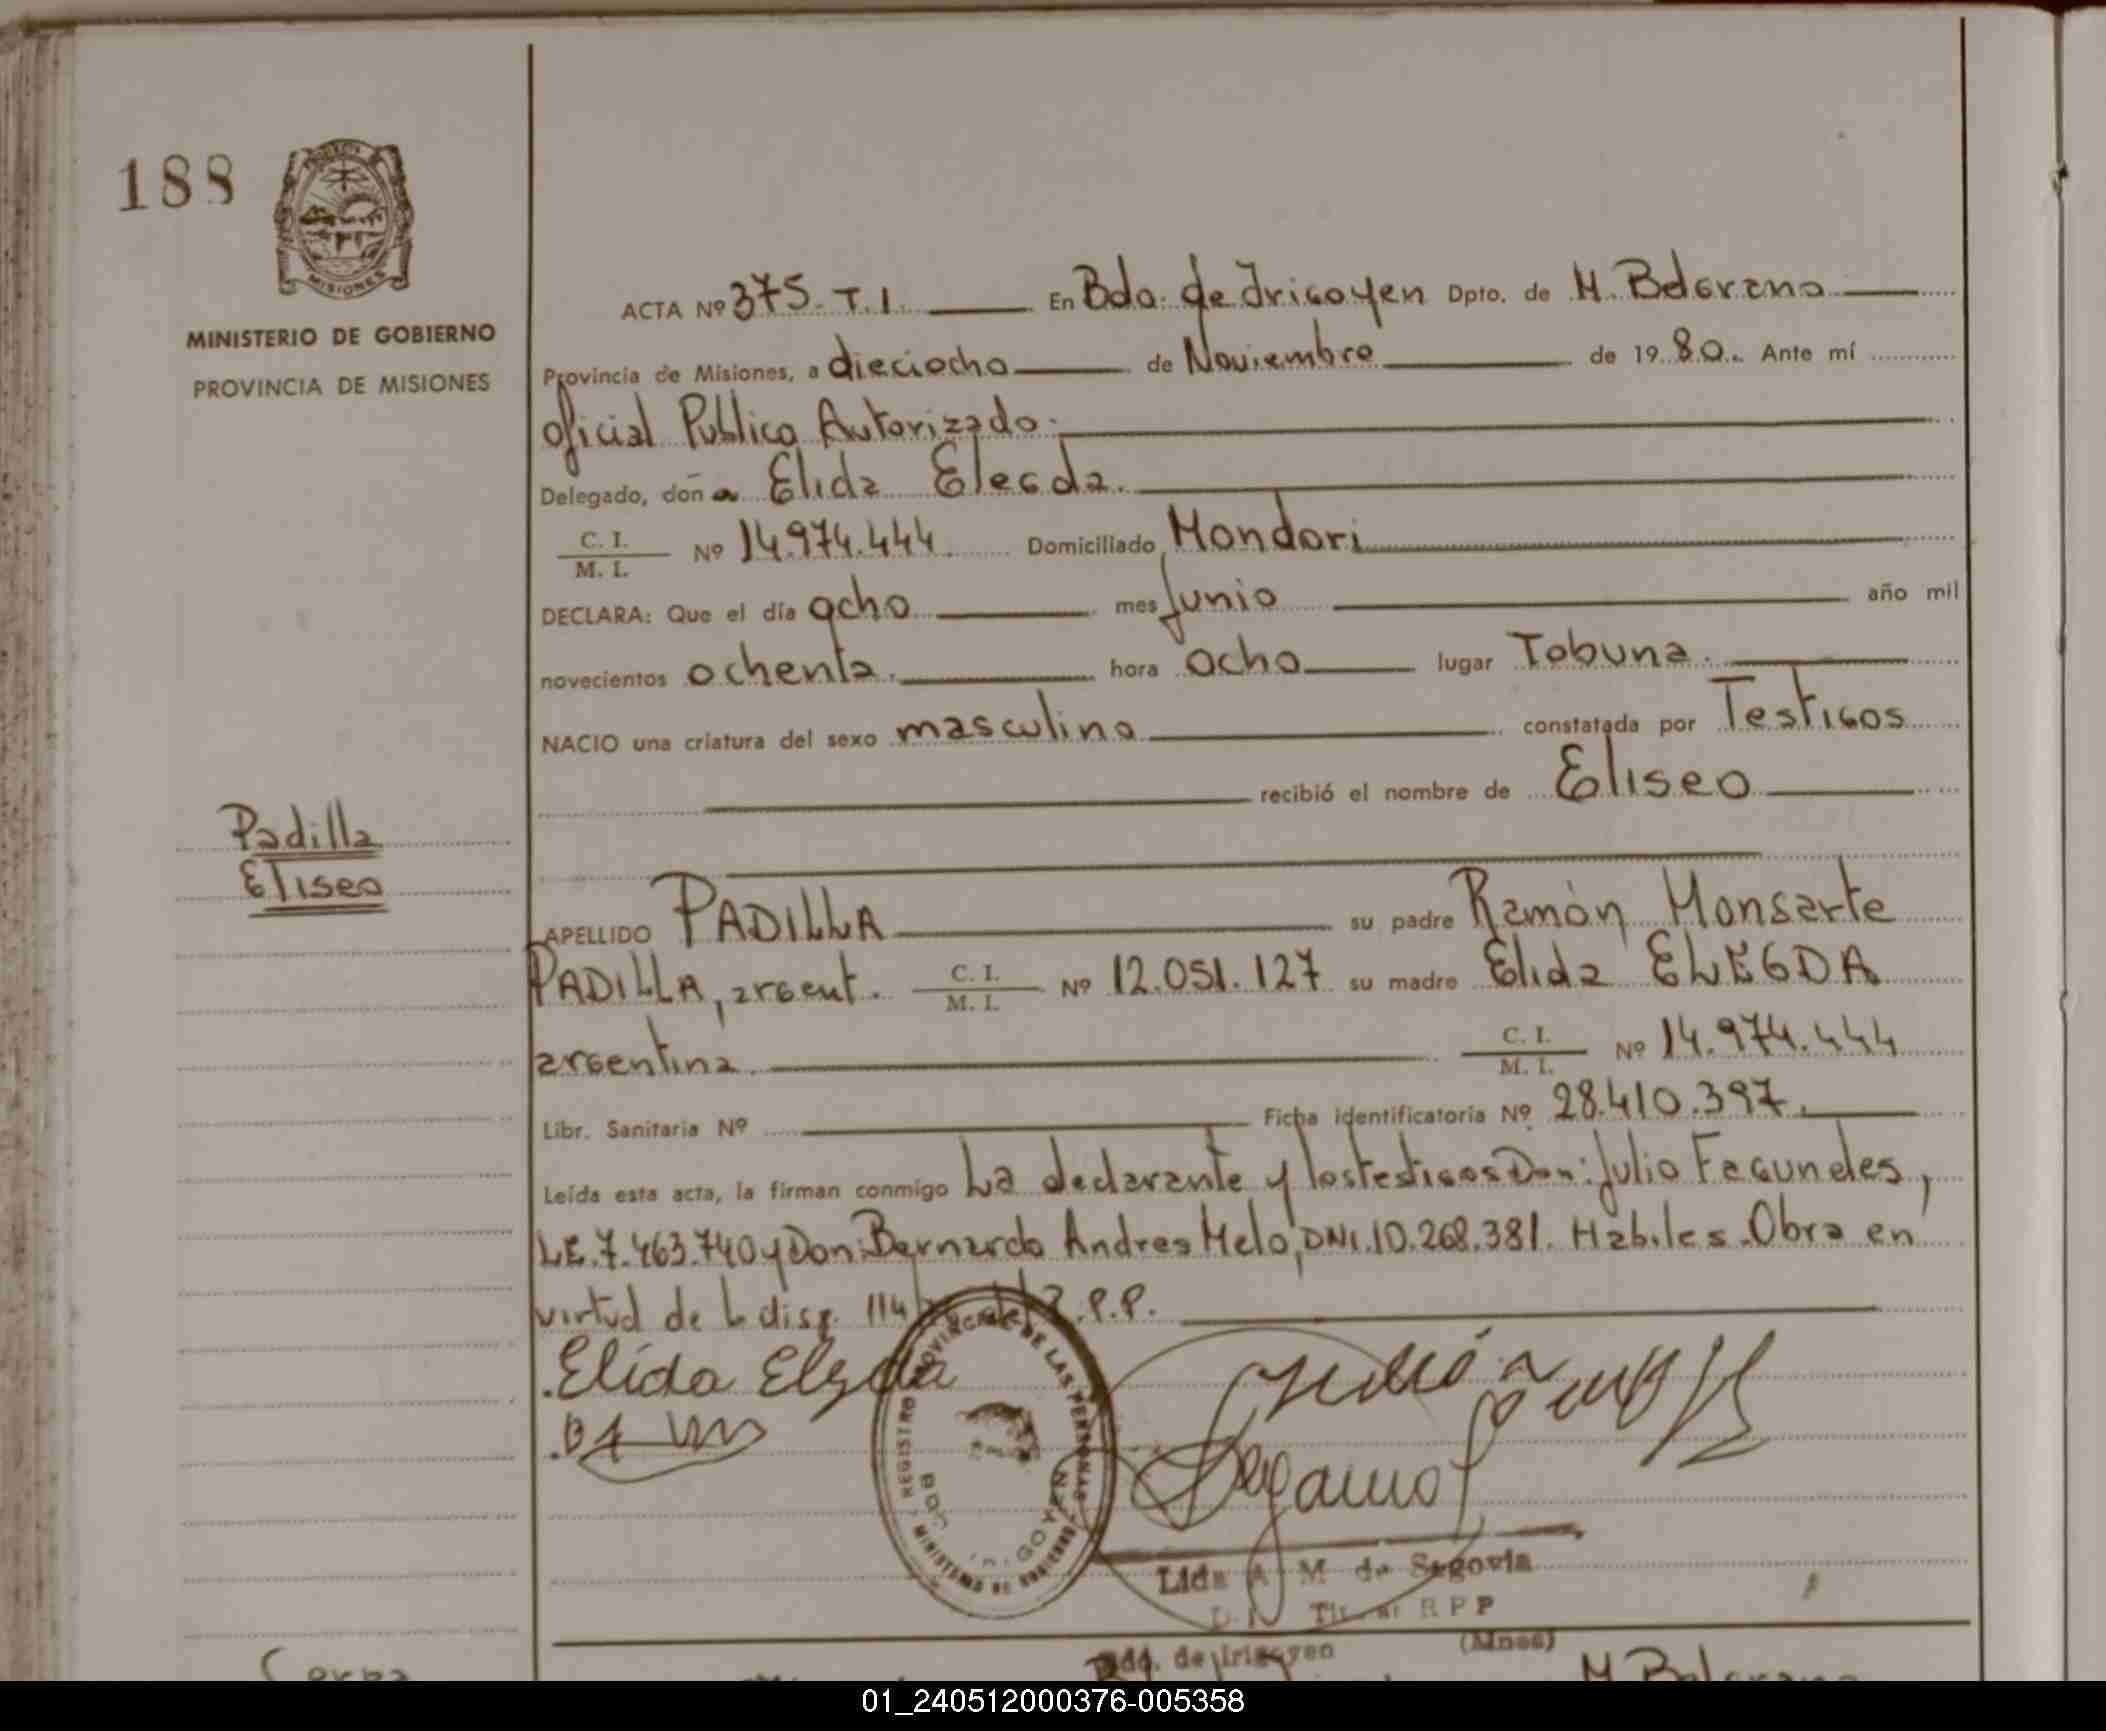 188
MINISTERIO DE GOBIERNO
PROVINCIA DE MISIONES
MISIONES
ACTA Nº 375. T.I. En Bdo. de Irigoyen Dpto. de M. Belgrano
Provincia de Misiones, a dieciocho de Noviembre de 1980. Ante mí
Oficial Publico Autorizado.
Delegado, doña Elida Elegda.
C. I.
M. I. Nº 14.974.444 Domiciliado Mondori
DECLARA: Que el día ocho mes Junio año mil
novecientos ochenta. hora ocho lugar Tobuna.
NACIO una criatura del sexo masculino constatada por Testigos
recibió el nombre de Eliseo
Padilla
Eliseo
APELLIDO PADILLA su padre Ramón Monsarte
PADILLA, argent. C. I. M. I. Nº 12.051.127 su madre Elida ELEGDA
argentina. C. I. M. I. Nº 14.974.444
Libr. Sanitaria Nº Ficha identificatoria Nº 28.410.397.
Leída esta acta, la firman conmigo La declarante y los testigos Don: Julio Fagundes,
L.E. 7.463.740 y Don: Bernardo Andres Melo, DNI. 10.268.381. Habiles. Obra en
virtud de la disp. 114 R.P.P.
Elida Elegda
REGISTRO PROVINCIAL DE LAS PERSONAS
MINISTERIO DE GOBIERNO
BDO. IRIGOYEN
Lida A M de Segovia
R P P
Bdo. de Irigoyen (Mnes)
M Belgrano
01_240512000376-005358